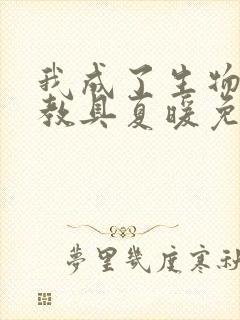 我成了生物
教具夏暖免
夢里幾度寒秋